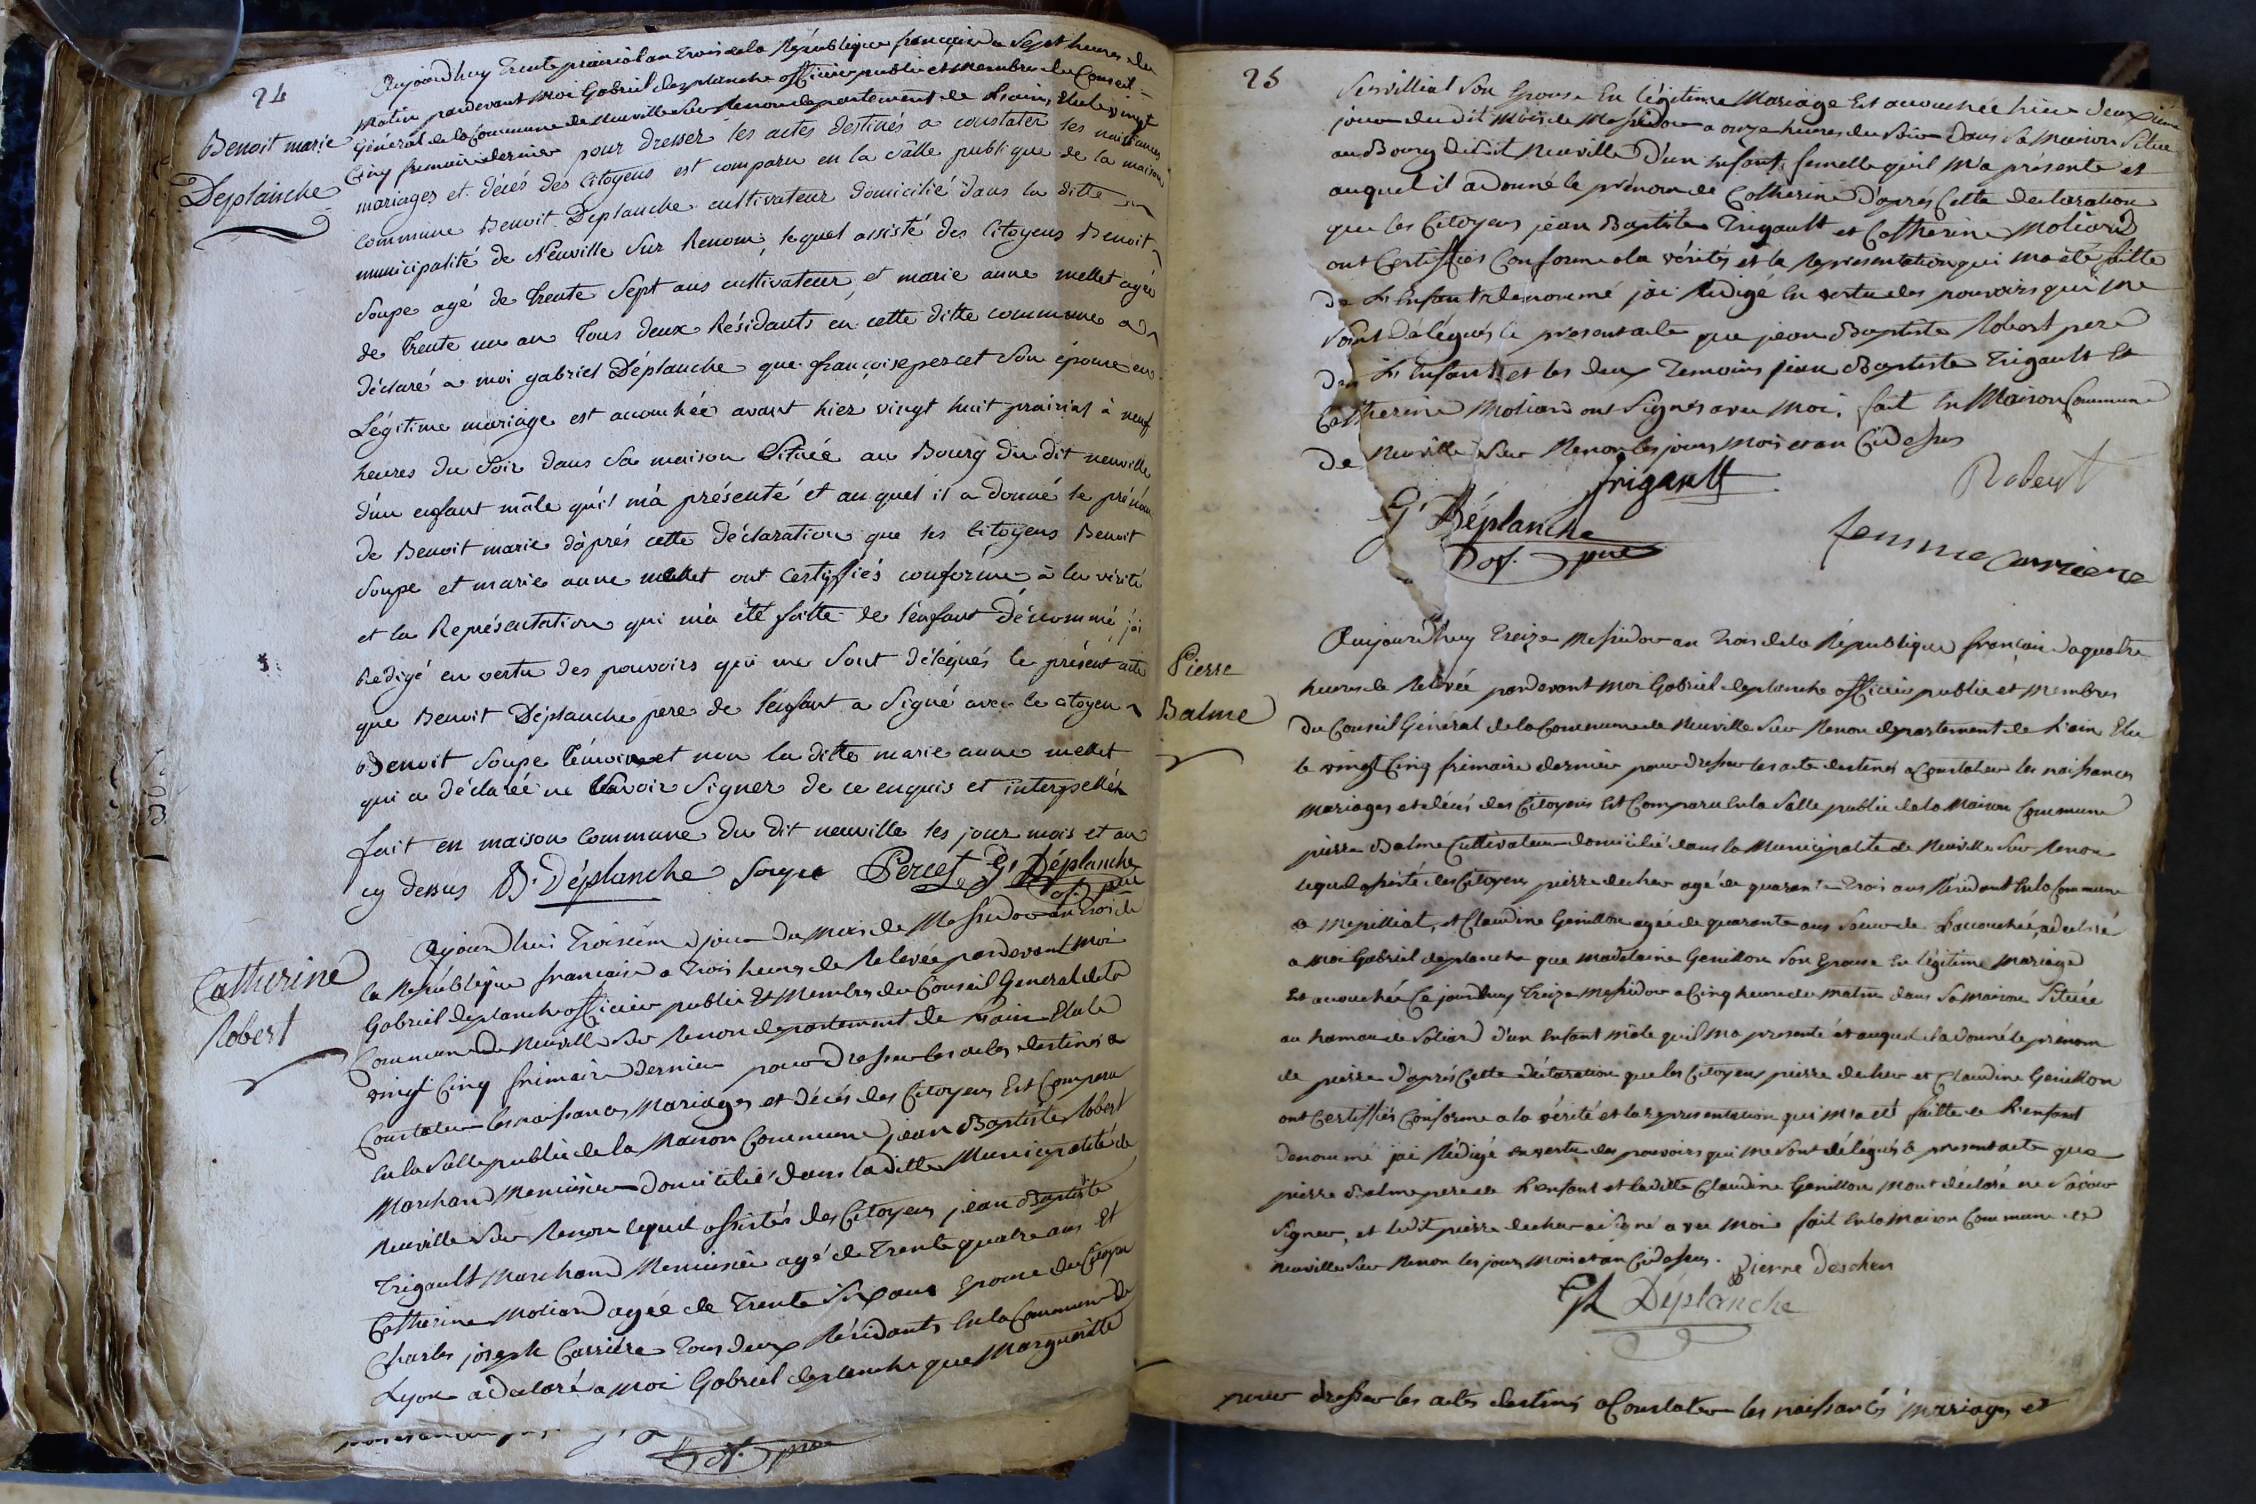 24
Benoit marie
Deplanche
Aujourdhuy trente prairial an trois de la République française a Sept heures du
Matin pardevant Moi Gabriel deplanche officier public et Membre du Conseil
Général de la Commune de Neuville Sur Renon departement de L'ain, Elu le vingt
Cinq frimaire dernier pour dresser les actes destinés a constater les naissances
mariages et décés des Citoyens est comparu en la sâlle publique de la maison
commune Benoit Deplanche cultivateur domicilié dans la ditte
municipalité de Neuville Sur Renom, lequel assisté des Citoyens Benoit
Soupe agé de trente Sept ans cultivateur, et marie anne mellet agée
de trente un an tous deux Résidants en cette ditte commune a
déclaré a moi gabriel Déplanche que françoise percet Son épouse en
Légitime mariage est acouchée avant hier vingt huit prairial à neuf
heures du Soir dans Sa maison Située au Bourg du dit neuville
d'un enfant mâle qu'il m'a présenté et au quel il a donné le prénom
de Benoit marie d'après cette déclaration que les Citoyens Benoit
Soupe et marie anne mellet ont certiffiés conforme à la vérité
et la Représentation qui m'a été faitte de l'enfant dénommé j'ai
Redigé en vertu des pouvoirs qui me Sont délégués le présent acte
que Benoit Déplanche pere de l'enfant a Signé avec le citoyen
Benoit Soupe témoin et non la ditte marie anne mellet
qui a déclarée ne Savoir Signer de ce enquis et interpellée
fait en maison commune du dit neuville les jour mois et an
cy dessus B. Déplanche Soupe Percet G. Déplanche
of. pue
Catherine
Robert
Aujourdhui troisième jour du Mois de Messidor an trois de
la République française a trois heures de Relevée pardevant Moi
Gabriel deplanche officier public Et Membre du Conseil General de la
Commune de Neuville Sur Renon departement de L'ain Elu le
vingt Cinq frimaire dernier pour dresser les actes destinés a
Constater les naissances Mariages et décés des Citoyens Est Comparu
En la Salle public de la Maison Commune jean Baptiste Robert
Marchand Menuisier domicilié dans la ditte Municipalité de
Neuville Sur Renon lequel assistés des Citoyens jean Baptiste
Trigault Marchand Menuisier agé de trente quatre ans Et
Catherine Moliard agée de trente Six ans Epouse du Citoyen
Charles joseph Carriere tous deux Résidants En la Commune de
Lyon a declaré a Moi Gabriel deplanche que Margueritte
of. pue
25
Servilliat Son Epouse En légitime Mariage Est acouchée hier deuxième
jour du dit Mois de Messidor a onze heures du Soir dans Sa Maison Située
au Bourg du dit Neuville D'un Enfant femelle qu'il M'a présenté et
auquel il a donné le prénom de Catherine D'après Cette declaration
que les Citoyens jean Baptiste Trigault et Catherine Moliard
ont Certiffiés Conforme a la vérités et la Representation qui ma été faitte
de L'Enfant denommé jai Redigé En vertu des pouvoirs qui me
Sont delégués le present acte que jean Baptiste Robert pere
de L'Enfant et les deux temoins jean Baptiste Trigault Et
Catherine Moliard ont Signés avec Moi. fait En Maison Commune
de Neuville Sur Renon les jours Mois et an Cidessus
Trigault Robert
G. Déplanche
of. pue
femme carriere
Pierre
Balme
Aujourdhuy treize Messidor an trois de la République française a quatre
heures de Relevée pardevant Moi Gabriel deplanche officier public et Membres
du Conseil Général de la Commune de Neuville Sur Renon departement de L'ain Elu
le vingt Cinq frimaire dernier pour dresser les acte destinés a Constater les naissances
Mariages et décés des Citoyens Est Comparu En la Salle public de la Maison Commune
pierre Balme Cultivateur domicilié dans la Municipalite de Neuville Sur Renon
lequel assisté des Citoyens pierre decher agé de quarante trois ans Résidant En la Commune
de Mepilliat, et Claudine Genillon agée de quarante ans Soeur de L'acouchée, a declaré
a Moi Gabriel deplanche que Madelaine Genillon Son Epouse En légitime Mariage
Est acouchée Ce jourdhuy treize Messidor a Cinq heure du Matin dans Sa Maison Située
au hamau de Soliard d'un Enfant Mâle qu'il Ma présenté et auquel il a donné le prénom
de pierre D'après Cette déclaration que les Citoyens pierre decher et Claudine Genillon
ont Certiffiés Conforme a la vérité et la representation qui M'a été faitte de L'enfant
denommé jai Rédigé en vertu des pouvoirs qui me Sont délégués le present acte que
pierre Balme pere de L'enfant et la ditte Claudine Genillon Mont déclaré ne Savoir
Signer, et le dit pierre decher a Signé avec Moi fait En la Maison Commune de
Neuville Sur Renon les jours Mois et an Cidessus. Pierre deschers
G Déplanche
pour dresser les actes destinés a Constater les naissances Mariages et